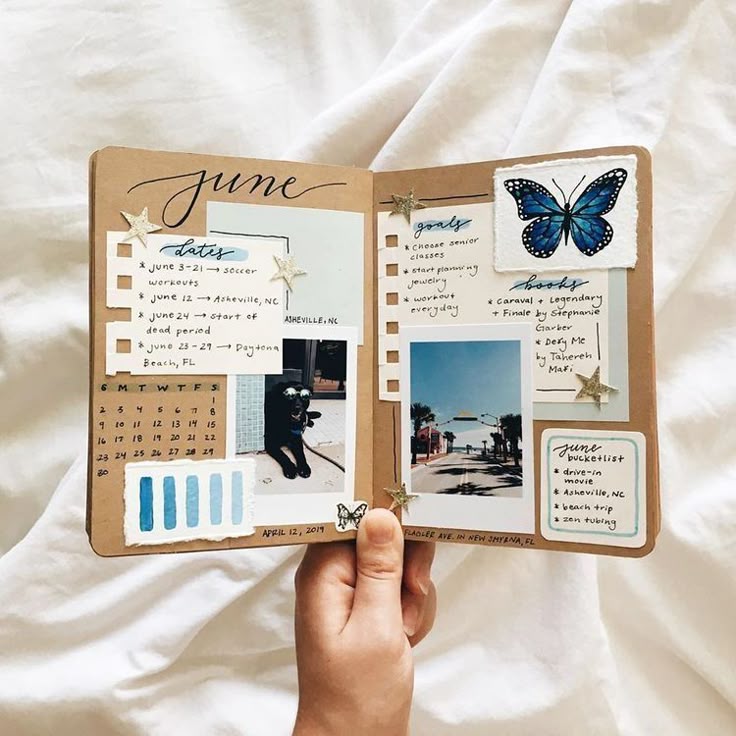 June
dates
* june 3-21 → soccer
workouts
* june 12 → Asheville, NC
* june 24 → start of
dead period
* june 23-29 → Daytona
Beach, FL
ASHEVILLE, NC
S M T W T F S
1
2 3 4 5 6 7 8
9 10 11 12 13 14 15
16 17 18 19 20 21 22
23 24 25 26 27 28 29
30
APRIL 12, 2019
goals
* Choose senior
classes
* start planning
jewelry
* workout
everyday
books
* Caraval + Legendary
+ Finale by Stephanie
Garber
* Defy Me
by Tahereh
Mafi
june
bucketlist
* drive-in
movie
* Asheville, NC
* beach trip
* zen tubing
FLAGLER AVE. IN NEW SMYRNA, FL